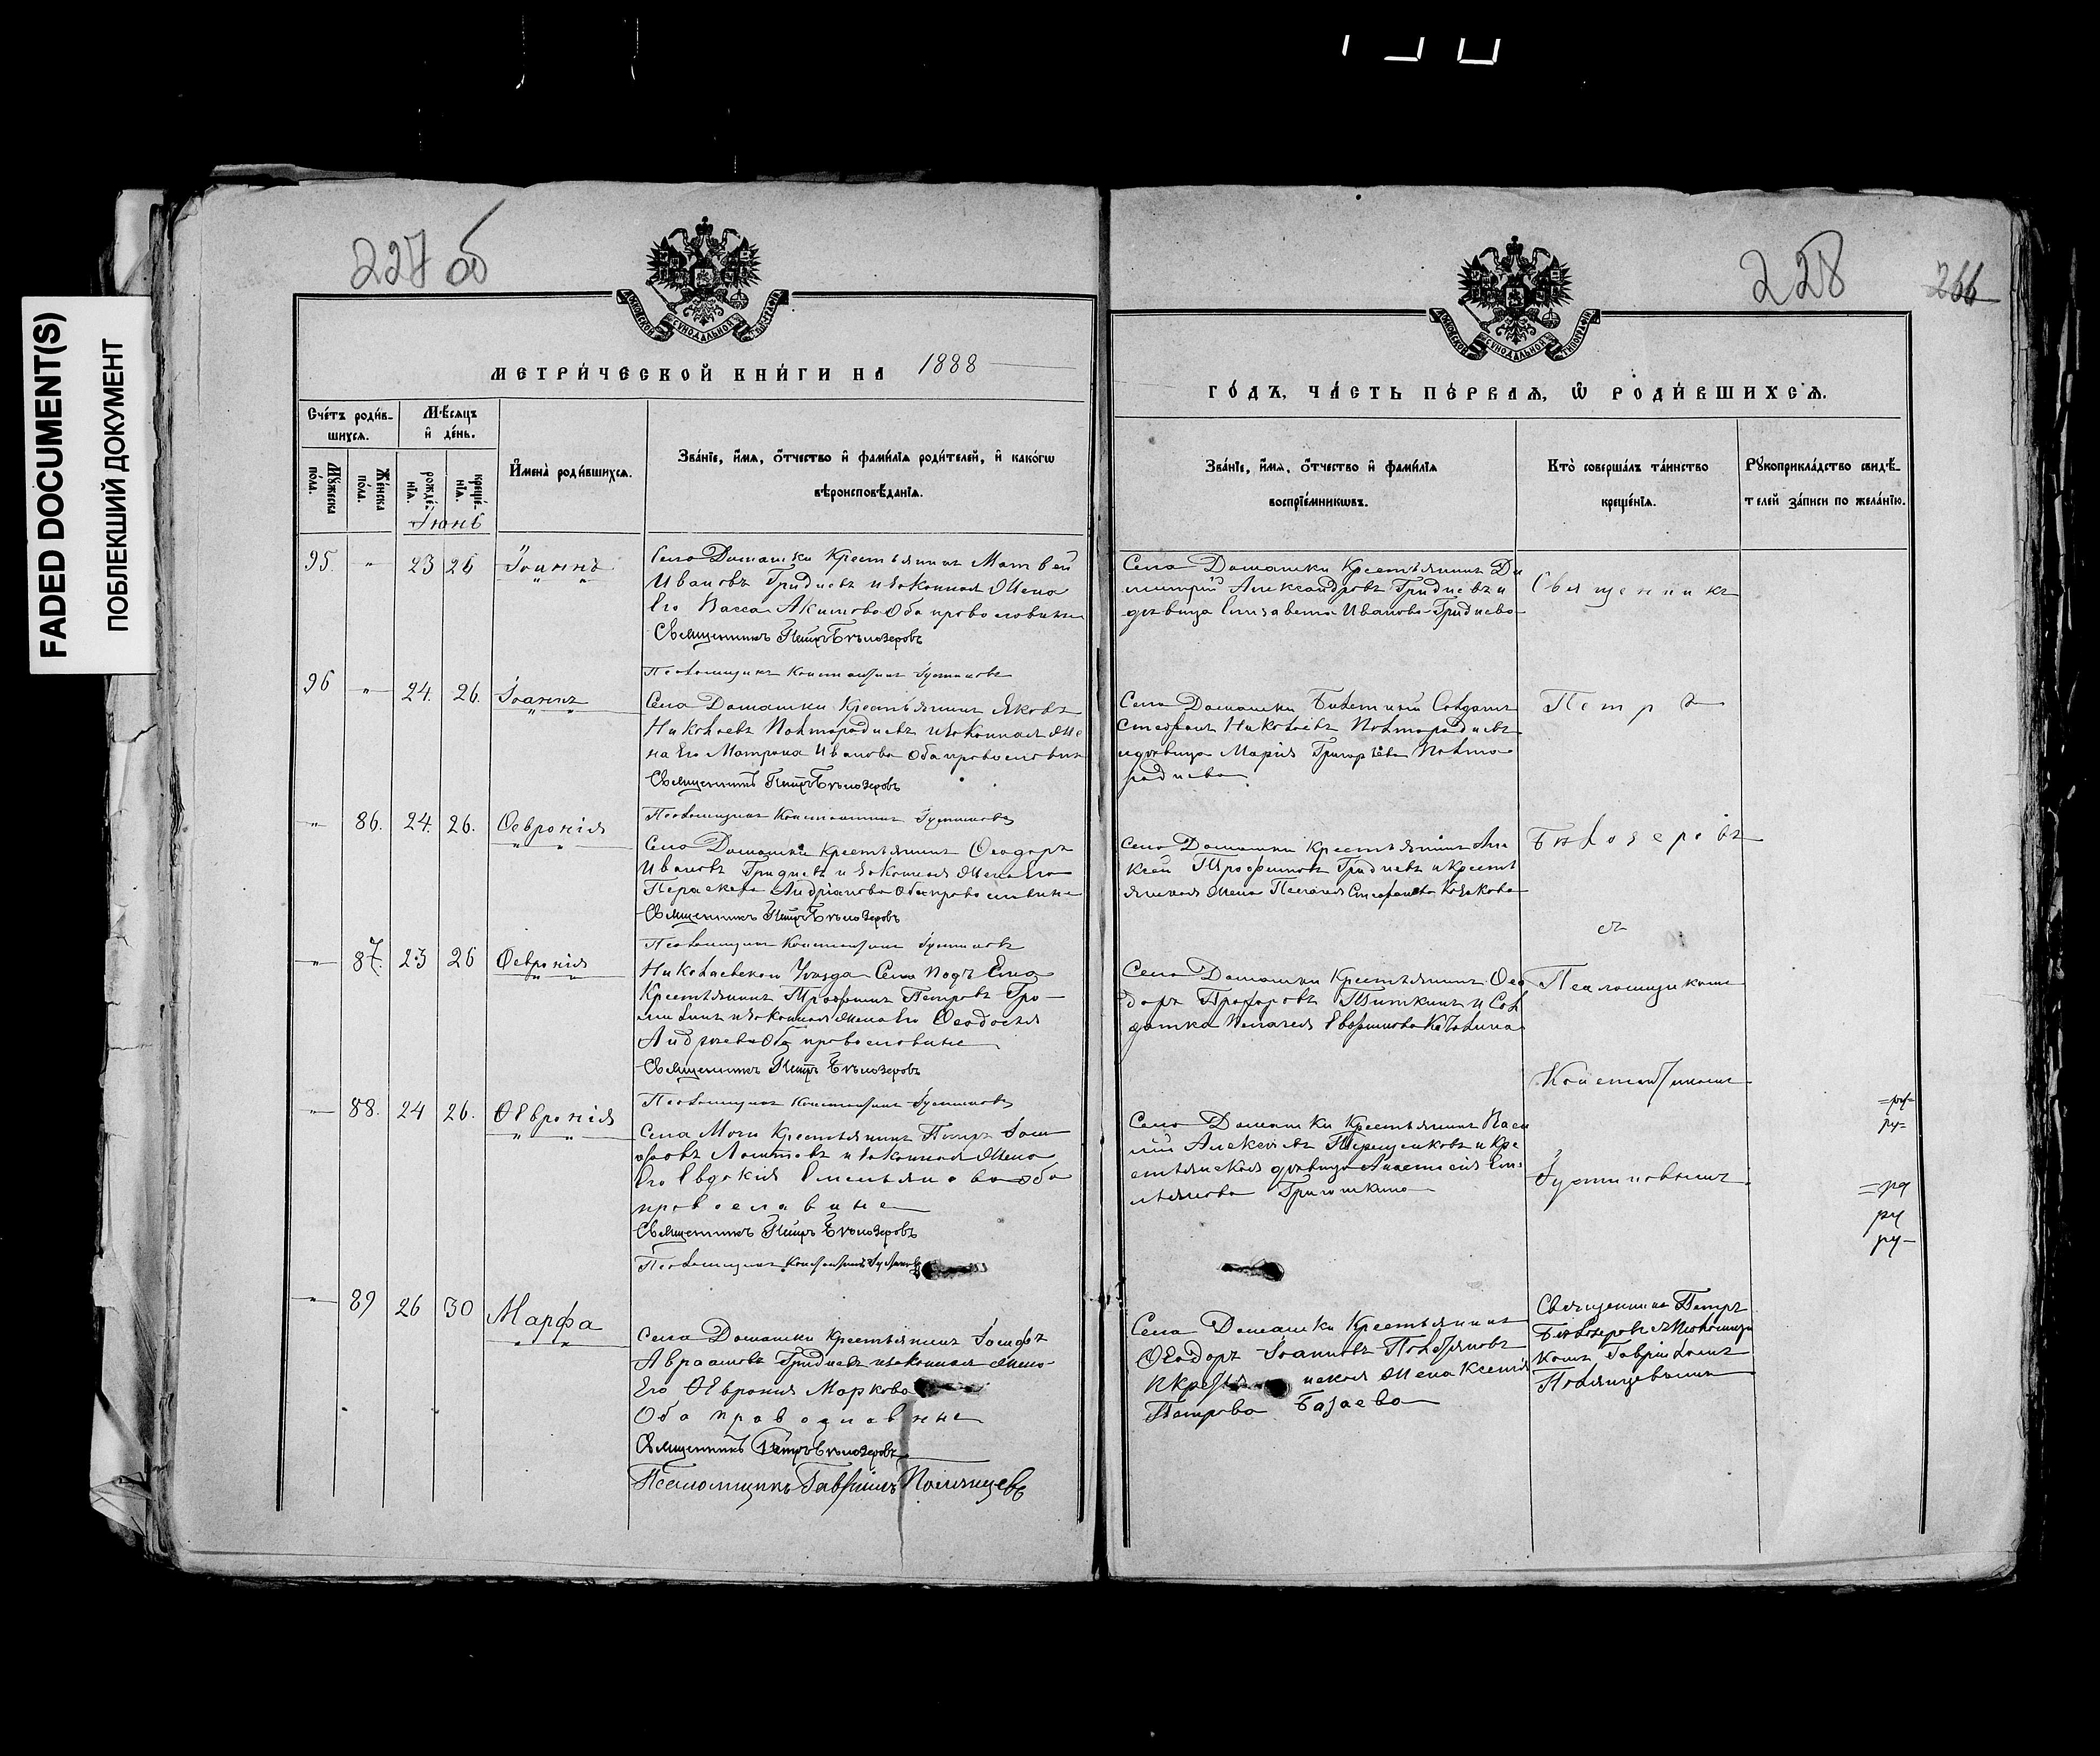 FADED DOCUMENT(S)
ПОБЛЕКШИЙ ДОКУМЕНТ
227 об
228
266
МЕТРИ́ЧЕСКОЙ КНИ́ГИ НА 1888
ГО́ДЪ, ЧА́СТЬ ПЕ́РВАѦ, Ѡ РОДИ́ВШИХСѦ.
Сче́тъ роди́в-
шихсѧ.
Мѣ́сѧцъ
и҆ де́нь.
Мꙋ́жеска
по́ла.
Же́нска
по́ла.
рожде́-
нїѧ.
креще́-
нїѧ.
И҆мена̀ роди́вшихсѧ.
Зва́нїе, и҆́мѧ, ѻ҆́тчество и҆ фами́лїѧ роди́телей, и҆ како́гѡ
вѣроисповѣ́данїѧ.
Зва́нїе, и҆́мѧ, ѻ҆́тчество и҆ фами́лїѧ
воспрїе́мникѡвъ.
Кто̀ соверша́лъ та́инство
креще́нїѧ.
Рꙋкоприкла́дство свидѣ́-
телей за́писи по жела́нїю.
Іюнь
95. " 23 26 Іоаннъ
Села Домашки Крестьянинъ Матвей
Ивановъ Гридневъ и законная Жена
Его Васса Акимова Оба православные
Священникъ Петръ Бѣлозеровъ
Псаломщикъ Константинъ Іустиновъ
Села Домашки Крестьянинъ Ди
митрій Александровъ Гридневъ и
дѣвица Елизавета Иванова Гриднева
Священникъ
96 " 24. 26. Іоаннъ
Села Домашки Крестьянинъ Яковъ
Николаевъ Полторадневъ и законная Же
на Его Матрона Иванова Оба православные
Священникъ Петръ Бѣлозеровъ
Псаломщикъ Константинъ Іустиновъ
Села Домашки Билетный Солдатъ
Стефанъ Николаевъ Полторадневъ
и дѣвица Марія Григорьева Полто
раднева
Петръ
" 86. 24. 26. Ѳевронія
Села Домашки Крестьянинъ Ѳеодоръ
Ивановъ Гридневъ и законная Жена Его
Параскева Андріанова Оба православные
Священникъ Петръ Бѣлозеровъ
Псаломщикъ Константинъ Іустиновъ
Села Домашки Крестьянинъ Але
ксей Трофимовъ Гридневъ и Кресть
янская Жена Пелагея Стефанова Казакова
Бѣлозеровъ
съ
" 87. 23 26 Ѳевронія
Николаевскаго Уѣзда Села
Крестьянинъ Трофимъ Петровъ
и законная Жена Его Ѳеодосия
Андреева Оба православные
Священникъ Петръ Бѣлозеровъ
Псаломщикъ Константинъ Іустиновъ
Села Домашки Крестьянинъ Ѳео
доръ Прохоровъ Титкинъ и Сол
датка Пелагея
Псаломщикомъ
Константиномъ
" 88. 24 26. Ѳевронія
Села Мочи Крестьянинъ Петръ
и законная Жена
Его Евдокия Емельянова оба
православные
Священникъ Петръ Бѣлозеровъ
Псаломщикъ Константинъ Іустиновъ
Села Домашки Крестьянинъ Васи
лій Алексѣевъ и Кре
стьянская дѣвица Анастасія Еме
льянова
Іустиновымъ
" 89 26 30 Марфа
Села Домашки Крестьянинъ Іосифъ
Авраамовъ Гридневъ и законная Жена
Его Ѳеврония Маркова
Оба православные
Священникъ Петръ Бѣлозеровъ
Псаломщикъ Гавріилъ Полянцевъ
Села Домашки Крестьянинъ
Ѳеодоръ Іоанновъ
и Крестьянская Жена Ксенія
Петрова Базаева
Священникъ Петръ
Бѣлозеровъ съ Псаломщи
комъ Гавріиломъ
Полянцевымъ